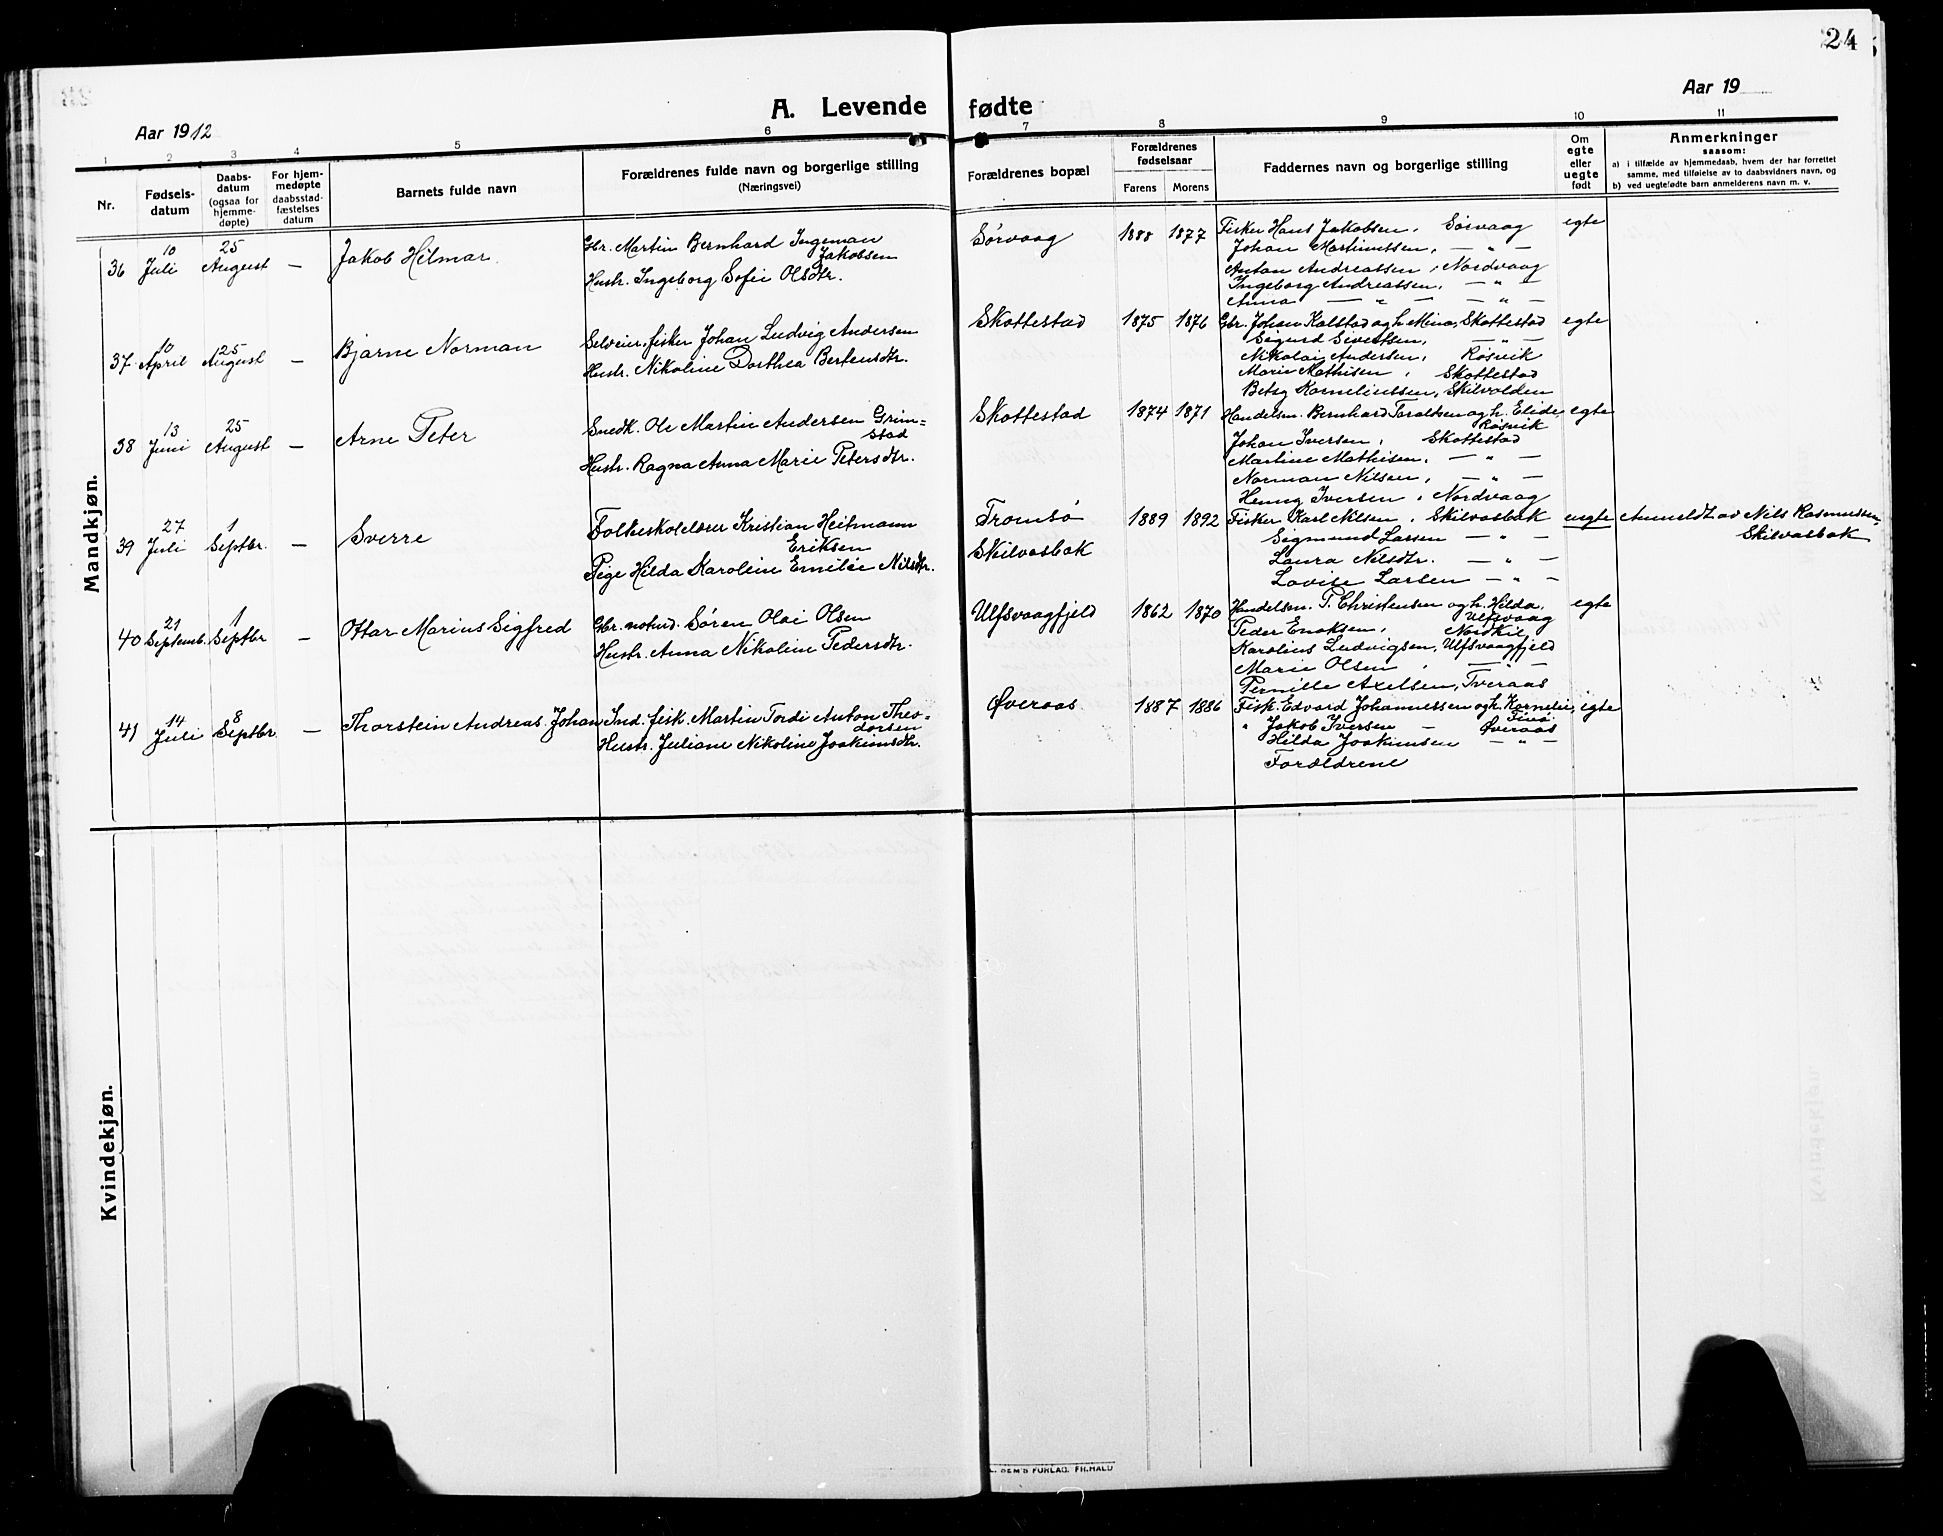 24
A. Levende fødte
Aar 1912
Aar 19
1 2 3 4 5 6 7 8 9 10 11
Nr.
Fødsels-
datum
Daabs-
datum
(ogsaa for
hjemme-
døpte)
For hjem-
medøpte
daabsstad-
fæstelses
datum
Barnets fulde navn
Forældrenes fulde navn og borgerlige stilling
(Næringsvei)
Forældrenes bopæl
Forældrenes
fødselsaar
Farens Morens
Faddernes navn og borgerlige stilling
Om
egte
eller
uegte
født
Anmerkninger
saasom:
a) i tilfælde av hjemmedaab, hvem der har forrettet
samme, med tilføielse av to daabsvidners navn, og
b) ved uegtefødte barn anmelderens navn m. v.
Mandkjøn.
36 10 Juli 25 August — Jakob Hilmar
Gbr. Martin Bernhard Ingeman
Jakobsen
Hustr. Ingeborg Sofie Olsdtr.
Sørvaag 1888 1877
Fisker Hans Jakobsen, Sørvaag
Johan Martinussen, — " —
Anton Andreassen, Nordvaag
Ingeborg Andreassen, — " —
Anna — " — — " —
egte
37 10 April 25 August — Bjarne Norman
Selveier, fisker Johan Ludvig Andersen
Hustr. Nikoline Dorthea Bertensdtr.
Skottestad 1875 1876
Gbr. Johan Kalstad og h. Mina, Skottestad
Sigurd Sivertsen, — " —
Nikolai Andersen, Røsvik
Marie Mathisen, Skottestad
Betsy Korneliussen, Skilvolden
egte
38 13 Juni 25 August — Arne Peter
Snedk. Ole Martin Andersen Grim=
stad
Hustr. Ragna Anna Marie Petersdtr.
Skottestad 1874 1871
Handelsm. Bernhard Taraldsen og h. Elide,
Røsvik
Johan Iversen, Skottestad
Martine Mathisen, — " —
Norman Nilsen, — " —
Henny Iversen, Nordvaag
egte
39 27 Juli 1 Septbr. — Sverre
Folkeskolelærer Kristian Heitmann
Eriksen
Pige Hilda Karoleine Emilie Nilsdtr.
Tromsø
Skilvasbak
1889 1892
Fisker Karl Nilsen, Skilvasbak
Sigmund Larsen — " —
Laura Nilsdtr. — " —
Lovise Larsen — " —
uegte
Anmeldt av Nils Rasmussen,
Skilvasbak
40 21 Septemb. 1 Septbr — Ottar Marius Sigfred
Gbr. Søren Olai Olsen
Hustr. Anna Nikoline Pedersdtr.
Ulfsvaagfjeld 1862 1870
Handelsm. P. Christensen og h. Hilda,
Ulfsvaag
Peder Enoksen, Nordkil
Karolius Ludvigsen, Ulfsvaagfjeld
Marie Olsen, — " —
Pernille Axelsen, Tveraas
egte
41 14 Juli 8 Septbr. — Thorstein Andreas Johan
Ind. fisk. Martin Tordi Anton Theo-
dorsen
Hustr. Juliane Nikoline Joakimsdtr.
Øveraas 1887 1886
Fisk. Edvard Johannessen og h. Kornelie,
" Jakob Iversen — Øveraas
Hilda Joakimsen — " —
Forældrene
egte
Kvindekjøn.
SEM'S FORLAG. FR.HALD